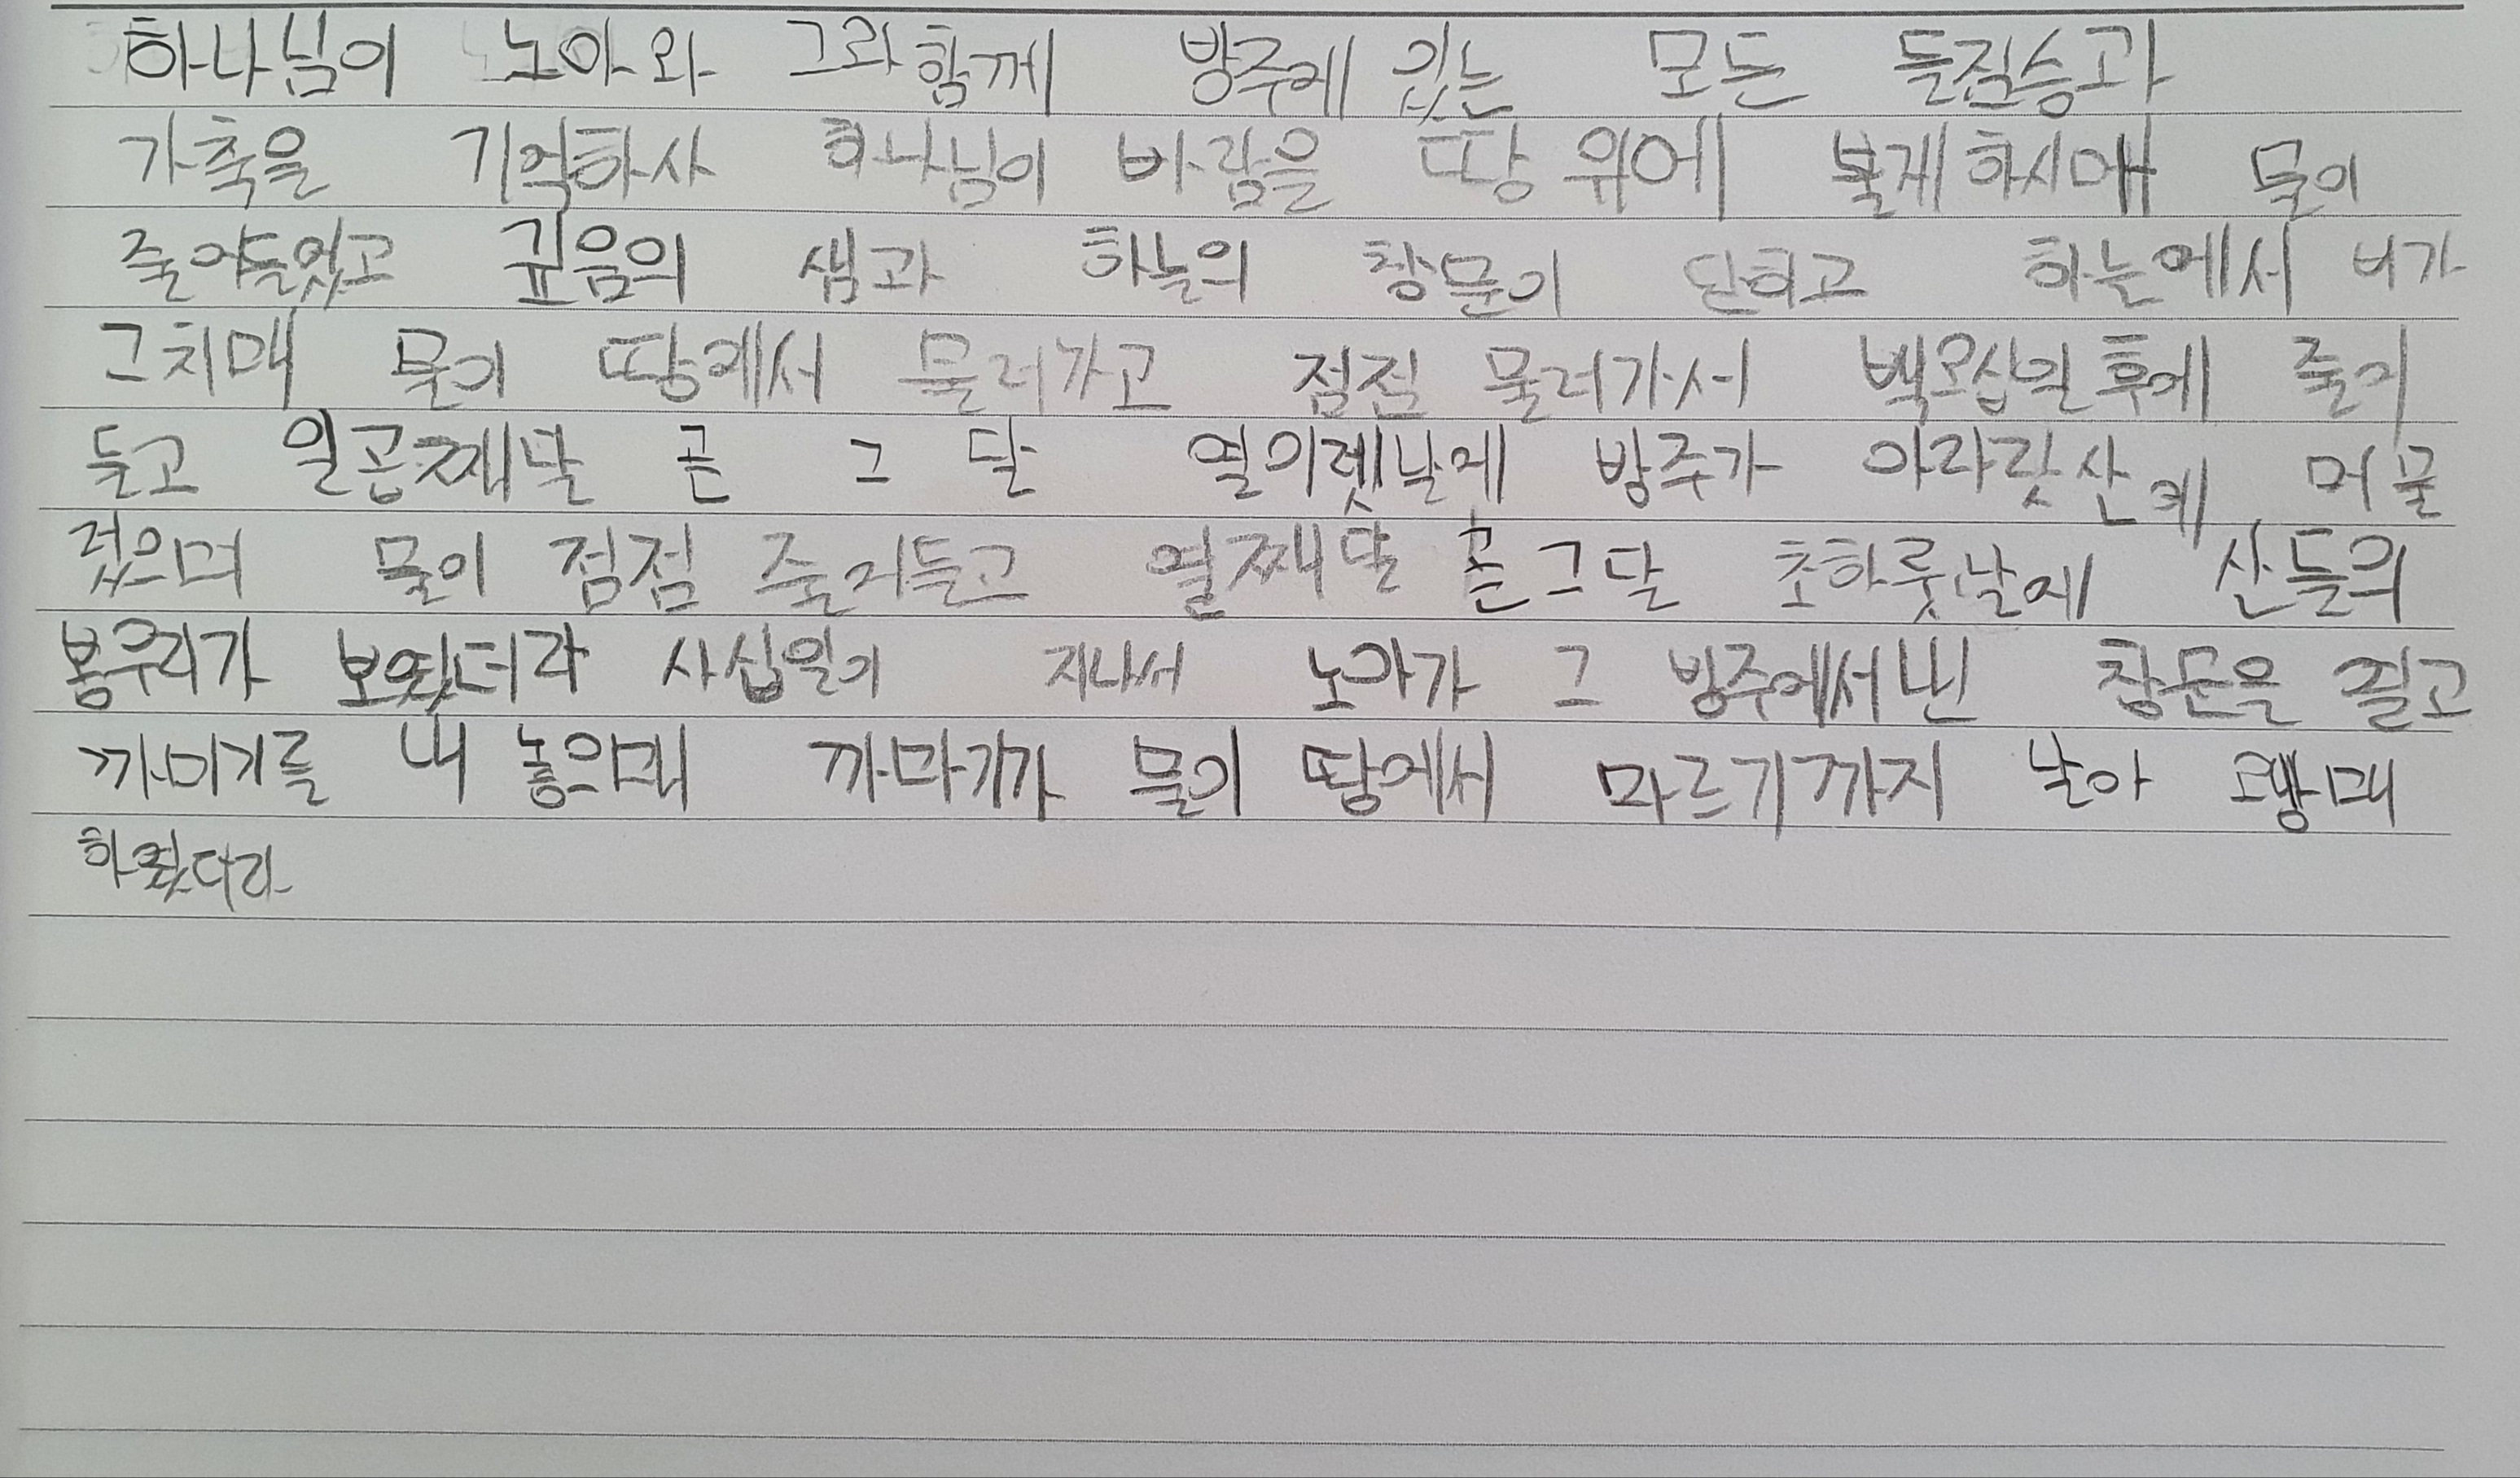 하나님이 노아와 그와 함께 방주에 있는 모든 들짐승과
가축을 기억하사 하나님이 바람을 땅 위에 불게 하시매 물이
줄어들었고 깊음의 샘과 하늘의 창문이 닫히고 하늘에서 비가
그치매 물이 땅에서 물러가고 점점 물러가서 백오십일 후에 줄어
들고 일곱째 달 곧 그 달 열이렛날에 방주가 아라랏산에 머물
렀으며 물이 점점 줄어들고 열째 달 곧 그 달 초하룻날에 산들의
봉우리가 보였더라 사십일이 지나서 노아가 그 방주에서 낸 창문을 열고
까마귀를 내 놓으매 까마귀가 물이 땅에서 마르기까지 날아 왕매
하였더라